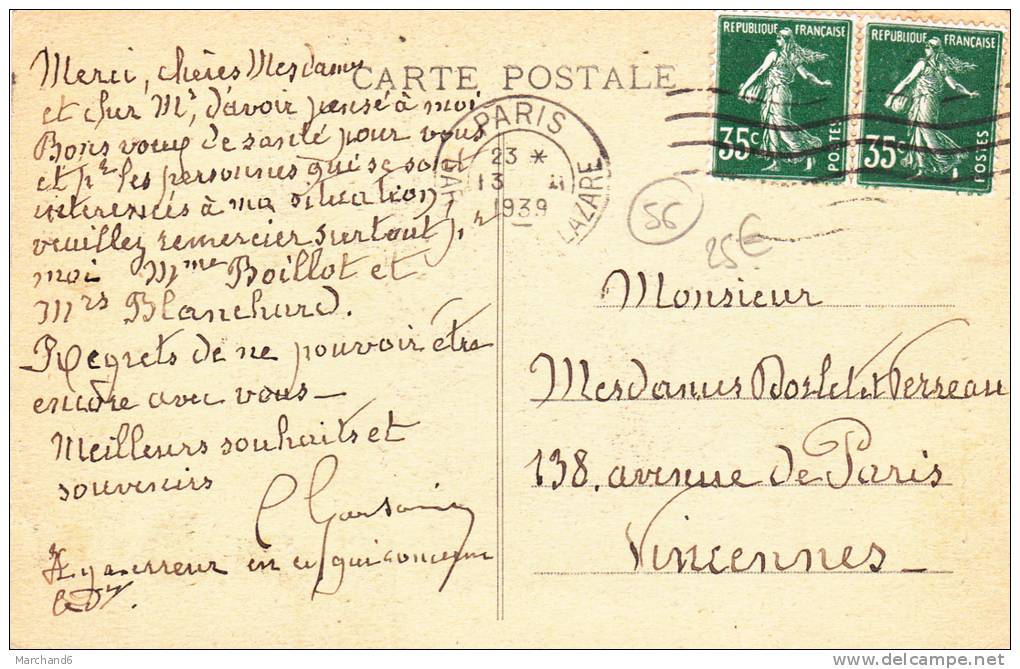 CARTE POSTALE
Merci, chères Mesdames
et cher Mr, d'avoir pensé à moi
Bons voeux de santé pour vous
et pr les personnes qui se sont
interessés à ma situation,
veuillez remercier surtout pr
moi Mme Boillot et
Mrs Blanchard.
Regrets de ne pouvoir être
encore avec vous –
Meilleurs souhaits et
souvenirs
Il y a erreur en ce qui concerne
le Dr
REPUBLIQUE FRANÇAISE
35c
POSTES
REPUBLIQUE FRANÇAISE
35c
POSTES
PARIS
23 *
13 II
1939
GARE LAZARE
56
25€
Monsieur
Mesdames et Perreau
138, avenue de Paris
Vincennes –
Marchand6
delcampe.net